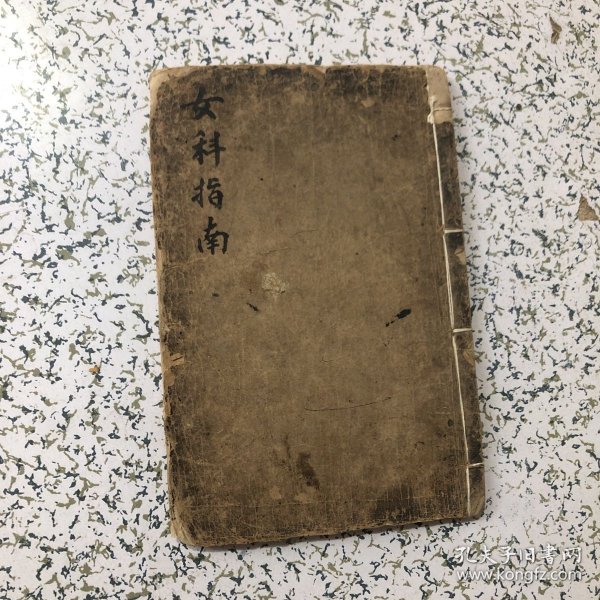 女科指南
孔夫子旧书网
www.kongfz.com